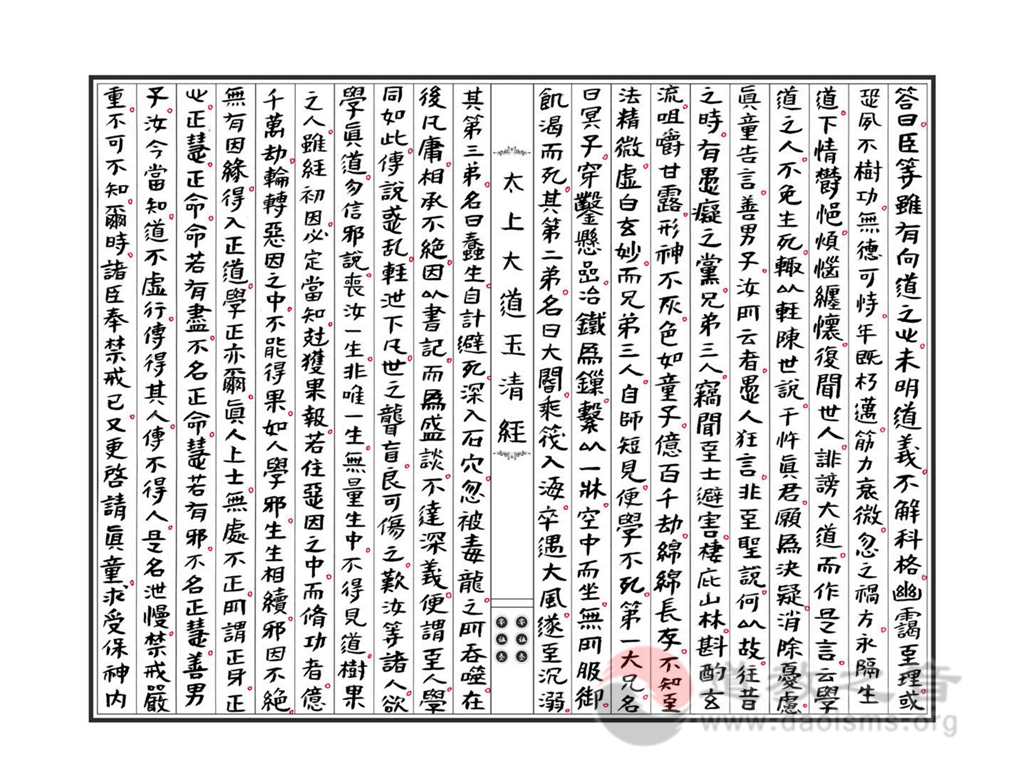 答曰臣等雖有向道之心未明道義不解科格幽靄至理或
夙不樹功無德可恃年既朽邁筋力衰微忽之禍方永隔生
道下情鬱悒煩惱纏懷復聞世人誹謗大道而作是言云學
道之人不免生死輙以輕陳世說干忤真君願爲決疑消除憂慮
真童告言善男子汝所云者愚人狂言非至聖說何以故往昔
之時有愚癡之黨兄弟三人竊聞至士避害棲庇山林斟酌玄
流咀嚼甘露形神不灰色如童子億百千劫綿綿長存不知至
法精微虛白玄妙而兄弟三人自師短見便學不死第一大兄名
曰冥子穿鑿懸嵒冶鐵爲鏁繫以一牀空中而坐無所服御
飢渴而死其第二弟名曰大闇乘筏入海卒遇大風遂至沉溺
太上大道玉清經
其第三弟名曰蠢生自計避死深入石穴忽被毒龍之所吞噬在
後凡庸相承不絕因以書記而爲盛談不達深義便謂至人學
同如此傳說惑乱輕泄下凡世之聾盲良可傷之歎汝等諸人欲
學真道勿信邪說喪汝一生非唯一生無量生中不得見道樹果
之人雖經初因必定當知尅獲果報若住惡因之中而脩功者億
千萬劫輪轉惡因之中不能得果如人學邪生生相續邪因不絕
無有因緣得入正道學正亦爾真人上士無處不正所謂正身正
心正慧正命命若有盡不名正命慧若有邪不名正慧善男
子汝今當知道不虛行傳得其人傳不得人是名泄慢禁戒嚴
重不可不知爾時諸臣奉禁戒已又更啓請真童求受保神內
道教之音
www.daoisms.org